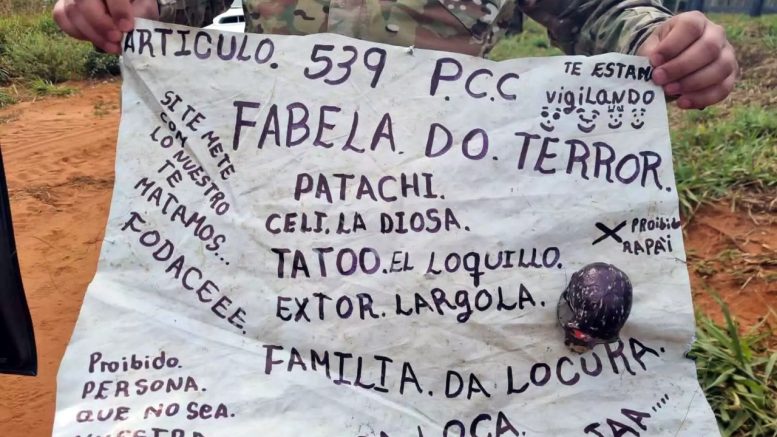 ARTICULO. 539 P.C.C
TE ESTAM
vigiLANDO
SI TE METE
CON
LO NUESTRO
TE
MATAMOS...
FODACEEE.
FABELA. DO. TERROR.
PATACHI.
CELI. LA DIOSA.
TATOO. EL LOQUILLO.
EXTOR. LARGOLA.
X PROIBIC
RAPA'I
FAMILIA. DA LOCURA.
LOCA.
Proibido.
PERSONA.
QUE NO SEA.
NUESTRA